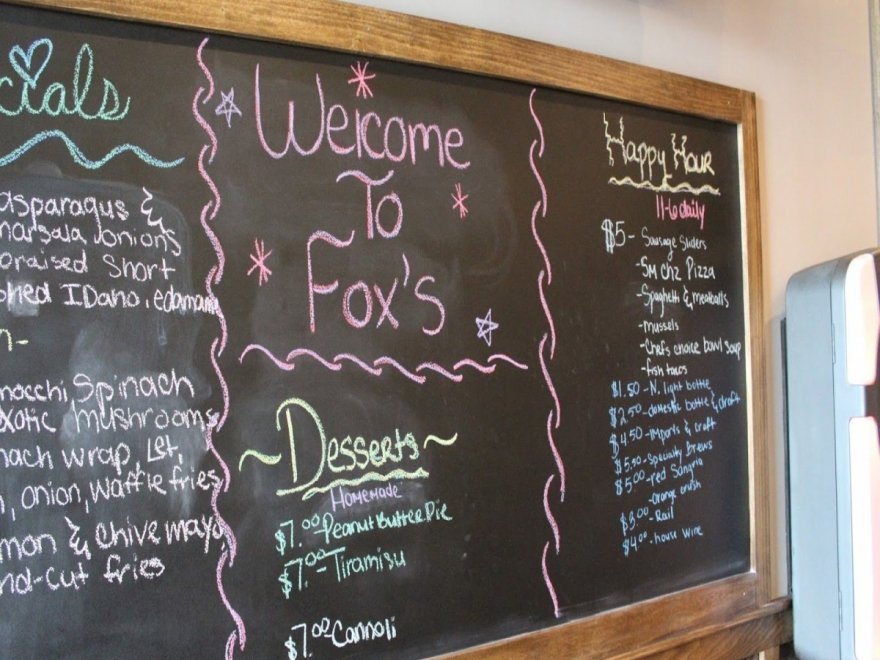 cials
asparagus &
marsala, onions
braised Short
shed IDaho, edamame
n-
nocchi, Spinach
exotic mushrooms
nach wrap, Let,
, onion, waffle fries
mon & Chive mayo,
nd-cut fries
Welcome
To
Fox's
~Desserts~
Homemade
$7.00-Peanut Butter Pie
$7.00-Tiramisu
$7.00 Cannoli
Happy Hour
11-6 daily
$5- Sausage Sliders
-Sm chz Pizza
-Spaghetti & meatballs
-mussels
-Chefs choice bowl soup
-fish tacos
$1.50-N. light bottle
$2.50-domestic bottle & draft
$4.50-imports & craft
$5.50-Specialty Brews
$5.00-red Sangria
-orange crush
$3.00-Rail
$4.00-house wine